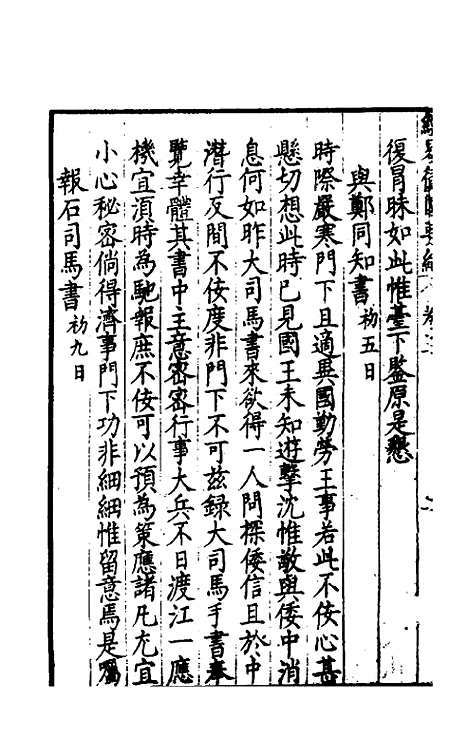 復冒昧如此惟臺下鑒原是懇
與鄭同知書 初五日
時際嚴寒門下且適異國勤勞王事若此不佞心甚
懸切想此時已見國王未知遊擊沈惟敬與倭中消
息何如昨大司馬書來欲得一人問探倭信且於中
潛行反間不佞度非門下不可茲錄大司馬手書奉
覽幸體其書中主意密密行事大兵不日渡江一應
機宜須時為馳報庶不佞可以預為策應諸凡尤宜
小心秘密倘得濟事門下功非細細惟留意焉是囑
報石司馬書 初九日